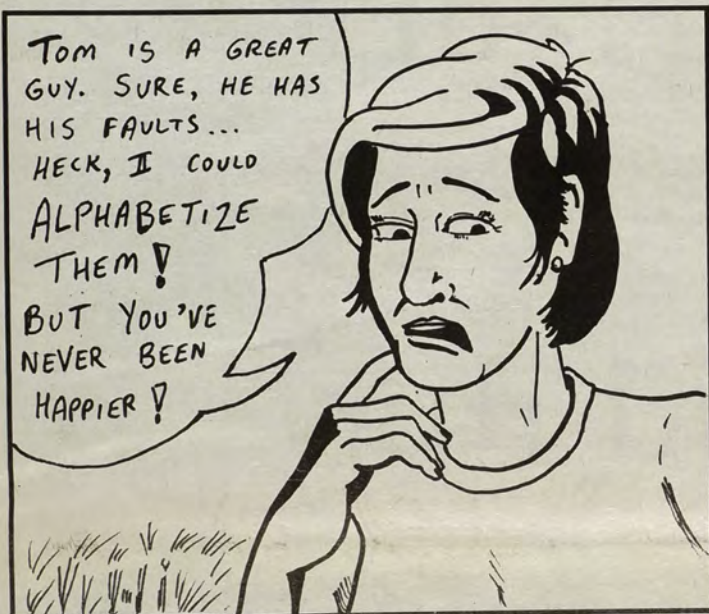 TOM IS A GREAT
GUY. SURE, HE HAS
HIS FAULTS...
HECK, I COULD
ALPHABETIZE
THEM!
BUT YOU'VE
NEVER BEEN
HAPPIER!